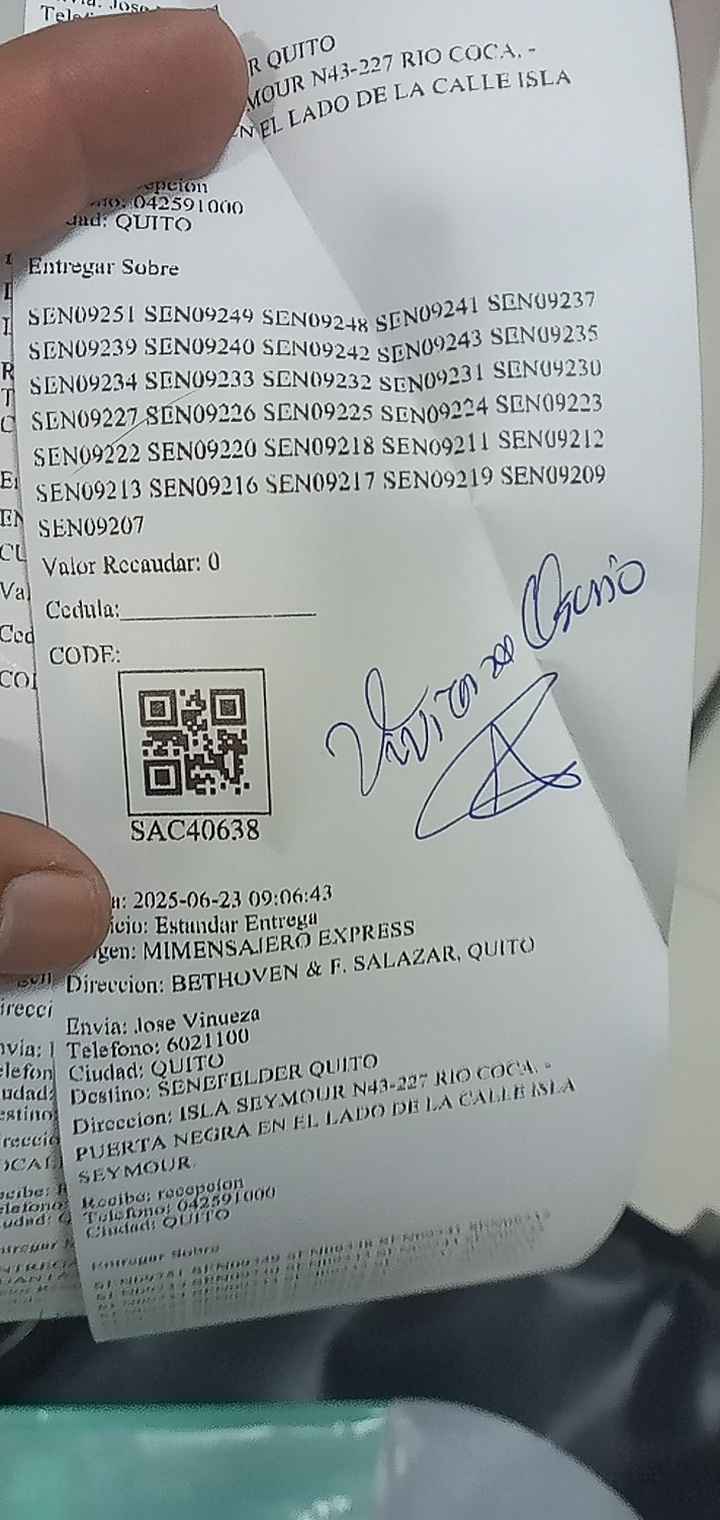 R QUITO
MOUR N43-227 RIO COCA. -
EN EL LADO DE LA CALLE ISLA
epcion
no: 042591000
dad: QUITO
Entregar Sobre
SEN09251 SEN09249 SEN09248 SEN09241 SEN09237
SEN09239 SEN09240 SEN09242 SEN09243 SEN09235
SEN09234 SEN09233 SEN09232 SEN09231 SEN09230
SEN09227 SEN09226 SEN09225 SEN09224 SEN09223
SEN09222 SEN09220 SEN09218 SEN09211 SEN09212
SEN09213 SEN09216 SEN09217 SEN09219 SEN09209
SEN09207
Valor Recaudar: 0
Cedula:
CODE:
Viviana Osorio
SAC40638
a: 2025-06-23 09:06:43
icio: Estandar Entrega
igen: MIMENSAJERO EXPRESS
Direccion: BETHOVEN & F. SALAZAR, QUITO
Envia: Jose Vinueza
Telefono: 6021100
Ciudad: QUITO
Destino: SENEFELDER QUITO
Direccion: ISLA SEYMOUR N43-227 RIO COCA. -
PUERTA NEGRA EN EL LADO DE LA CALLE ISLA
SEYMOUR
Recibe: recepcion
Telefono: 042591000
Ciudad: QUITO
Entregar Sobre